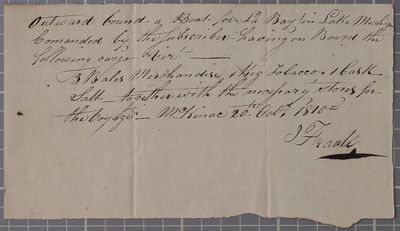 Outward bound a Boat for La Bay in Lake
Comanded by the subscriber having on Board the
following cargo Viz.
3 Bales Merchandise 1 Keg Tobacco 1 Cask
Salt together with the necessary stores for
the Voyage Mckinac 20th Octr. 1810
J Frank